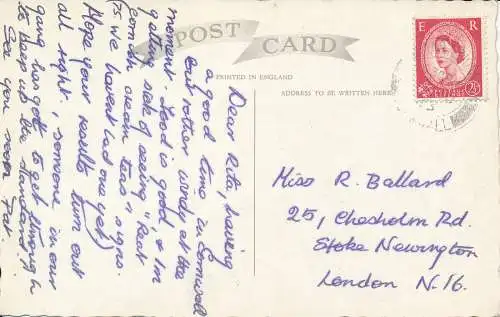 POST CARD
PRINTED IN ENGLAND
ADDRESS TO BE WRITTEN HERE
E R
2½D
Dear Rita, having
a good time in Cornwall
but rather windy at the
moment. Food is good, & I'm
getting sick of seeing "Real
Cornish cream teas" signs.
(P.S. We haven't had one yet)
Hope your results turn out
all right, someone in our
gang has got to get through
to keep up the standard!
See you soon Pat.
Miss R. Ballard
25, Chesholm Rd.
Stoke Newington
London N.16.